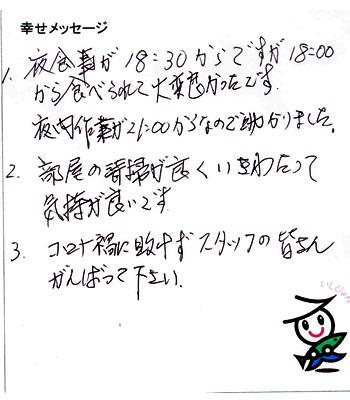 幸せメッセージ
1. 夜食事が18:30からですが18:00
から食べられて大変良かったです.
夜間作業が21:00からなので助かりました.
2. 部屋の清掃が良くいきわたって
気持が良いです
3. コロナ禍に敗けずスタッフの皆さん
がんばって下さい.